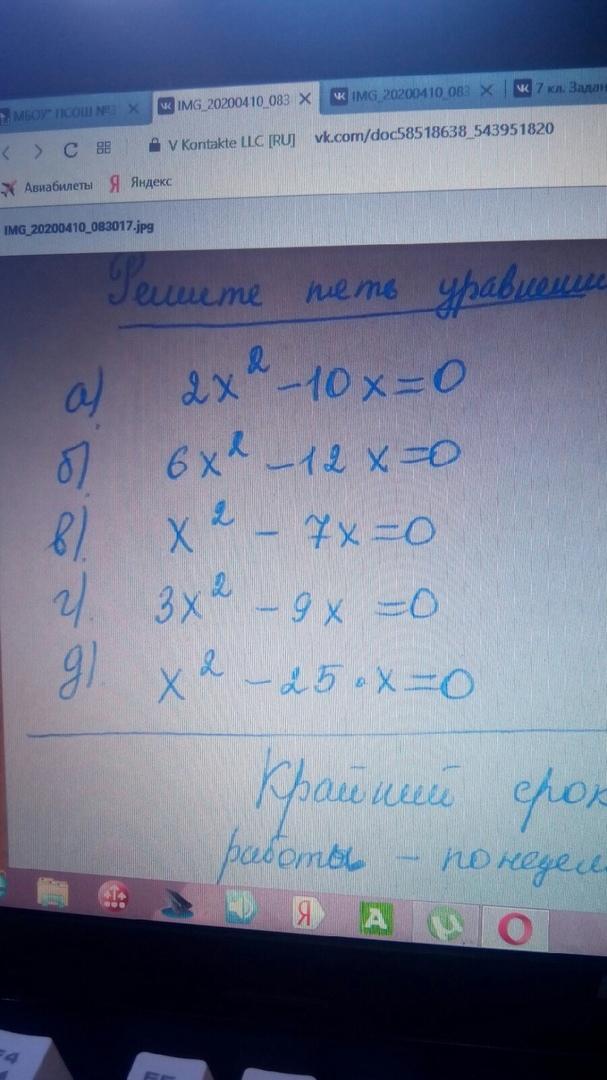 МБОУ" ПСОШ №3
IMG_20200410_083
IMG_20200410_083
7 кл. Задан
V Kontakte LLC [RU] vk.com/doc58518638_543951820
Авиабилеты Яндекс
IMG_20200410_083017.jpg
Решите пять уравнени
а) 2x² - 10x = 0
б) 6x² - 12x = 0
в) x² - 7x = 0
г) 3x² - 9x = 0
д) x² - 25 · x = 0
Крайний срок
работы - понедел
Я A
F4